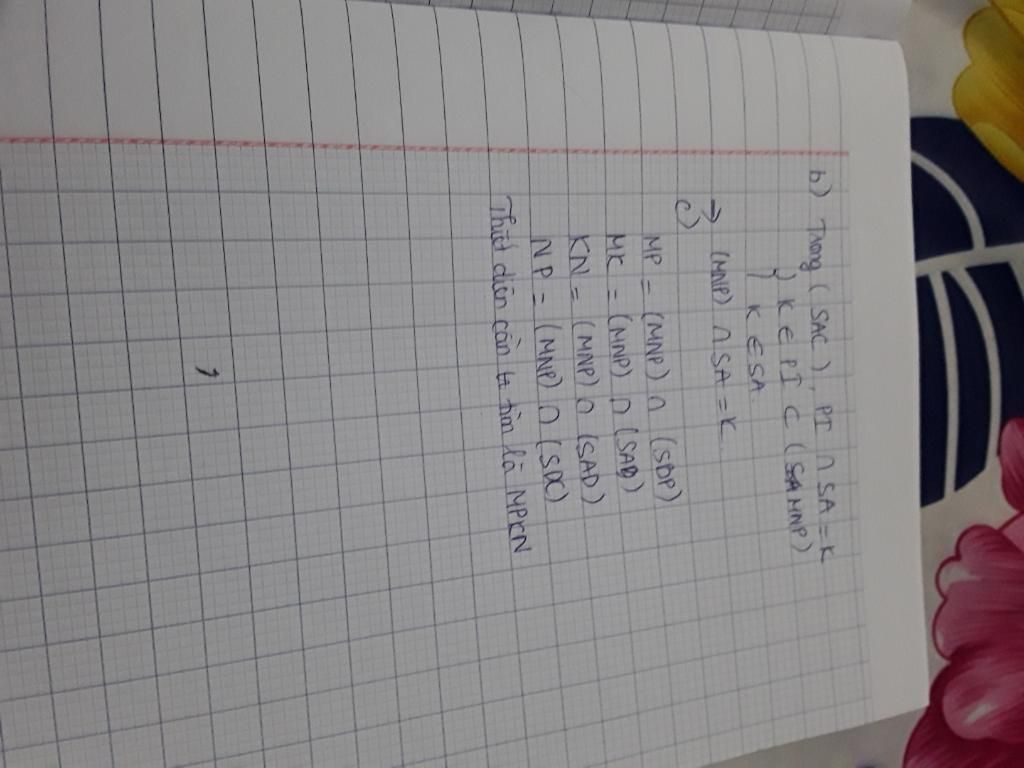 b) Trong (SAC), PI ∩ SA = K
} K ∈ PI ⊂ (MNP)
} K ∈ SA
→ (MNP) ∩ SA = K.
c)
MP = (MNP) ∩ (SDP)
MK = (MNP) ∩ (SAB)
KN = (MNP) ∩ (SAD)
NP = (MNP) ∩ (SDC)
Thiết diện cần tìm là MPKN